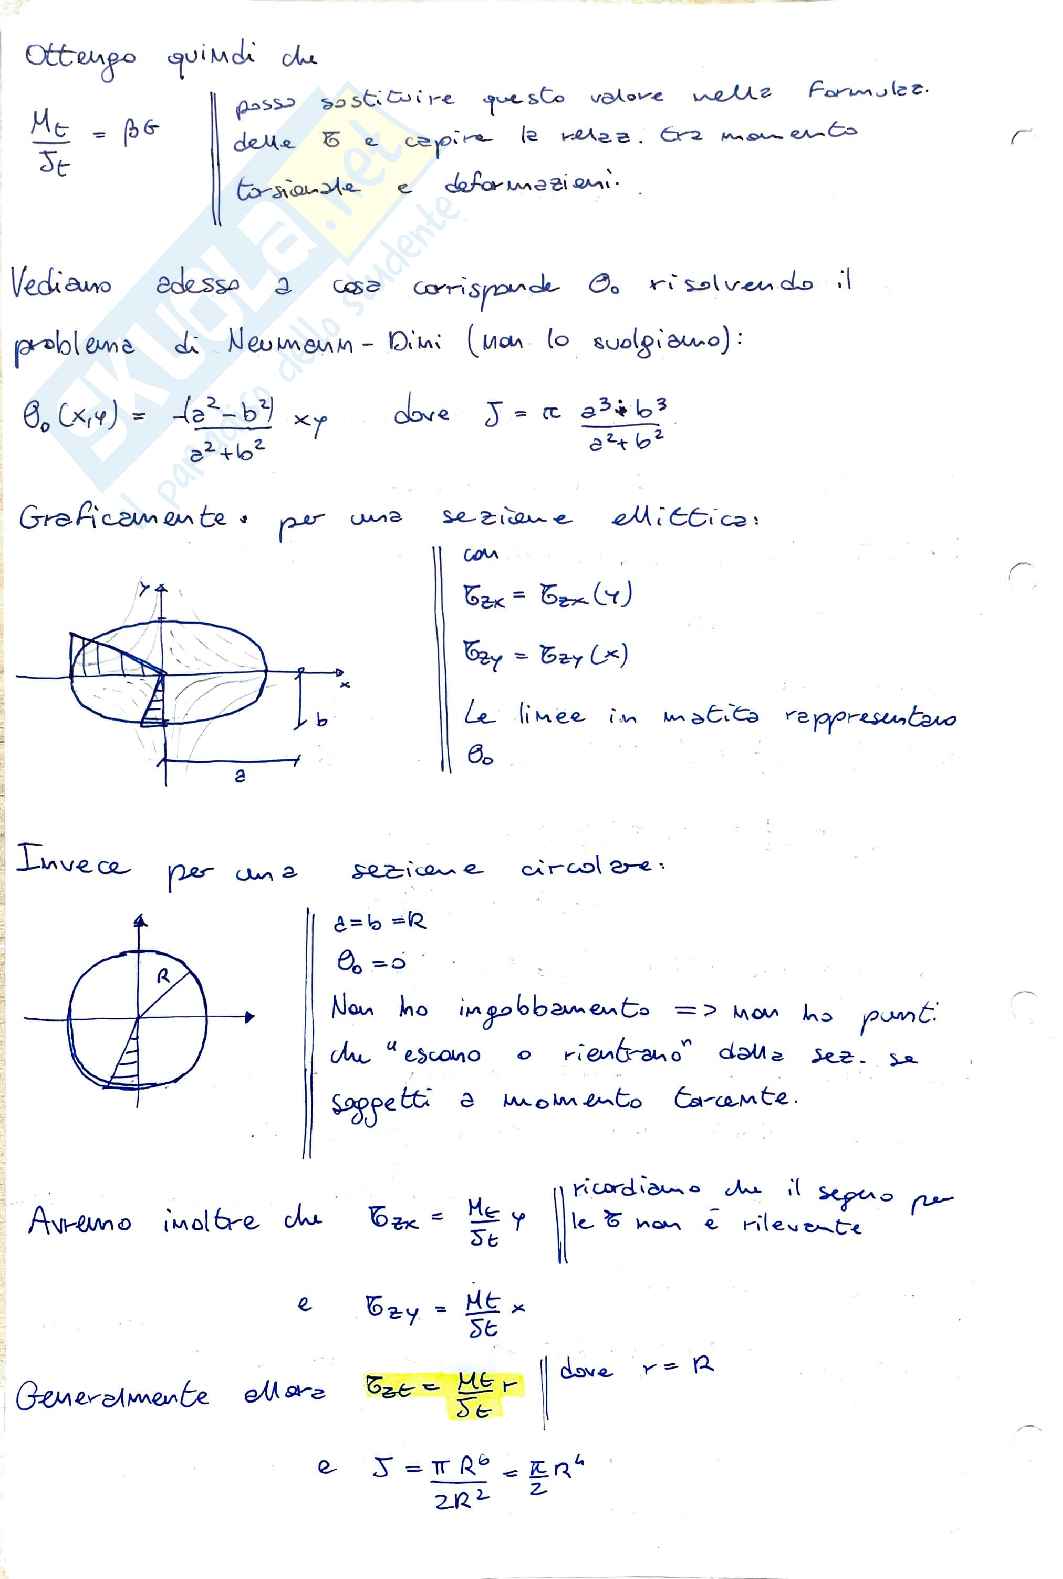 Ottengo quindi che
Mt/Jt = βG
posso sostituire questo valore nella formulaz.
delle τ e capire la relaz. tra momento
torsionale e deformazioni.
Vediamo adesso a cosa corrisponde θ₀ risolvendo il
problema di Neumann-Dini (non lo svolgiamo):
θ₀(x,y) = -(a²-b²)/(a²+b²) xy dove J = π a³·b³/(a²+b²)
Graficamente. per una sezione ellittica:
con
τzx = τzx(y)
τzy = τzy(x)
Le linee in matita rappresentano
θ₀
y
x
b
a
Invece per una sezione circolare:
R
a=b=R
θ₀=0
Non ho ingobbamento => non ho punti
che "escano o rientrano" dalla sez. se
soggetti a momento torcente.
Avremo inoltre che τzx = Mt/Jt y
ricordiamo che il segno per
le τ non è rilevante
e τzy = Mt/Jt x
Generalmente allora τzt = Mt/Jt r dove r = R
e J = πR⁶/2R² = π/2 R⁴
SKUOLA.net
il paradiso dello studente